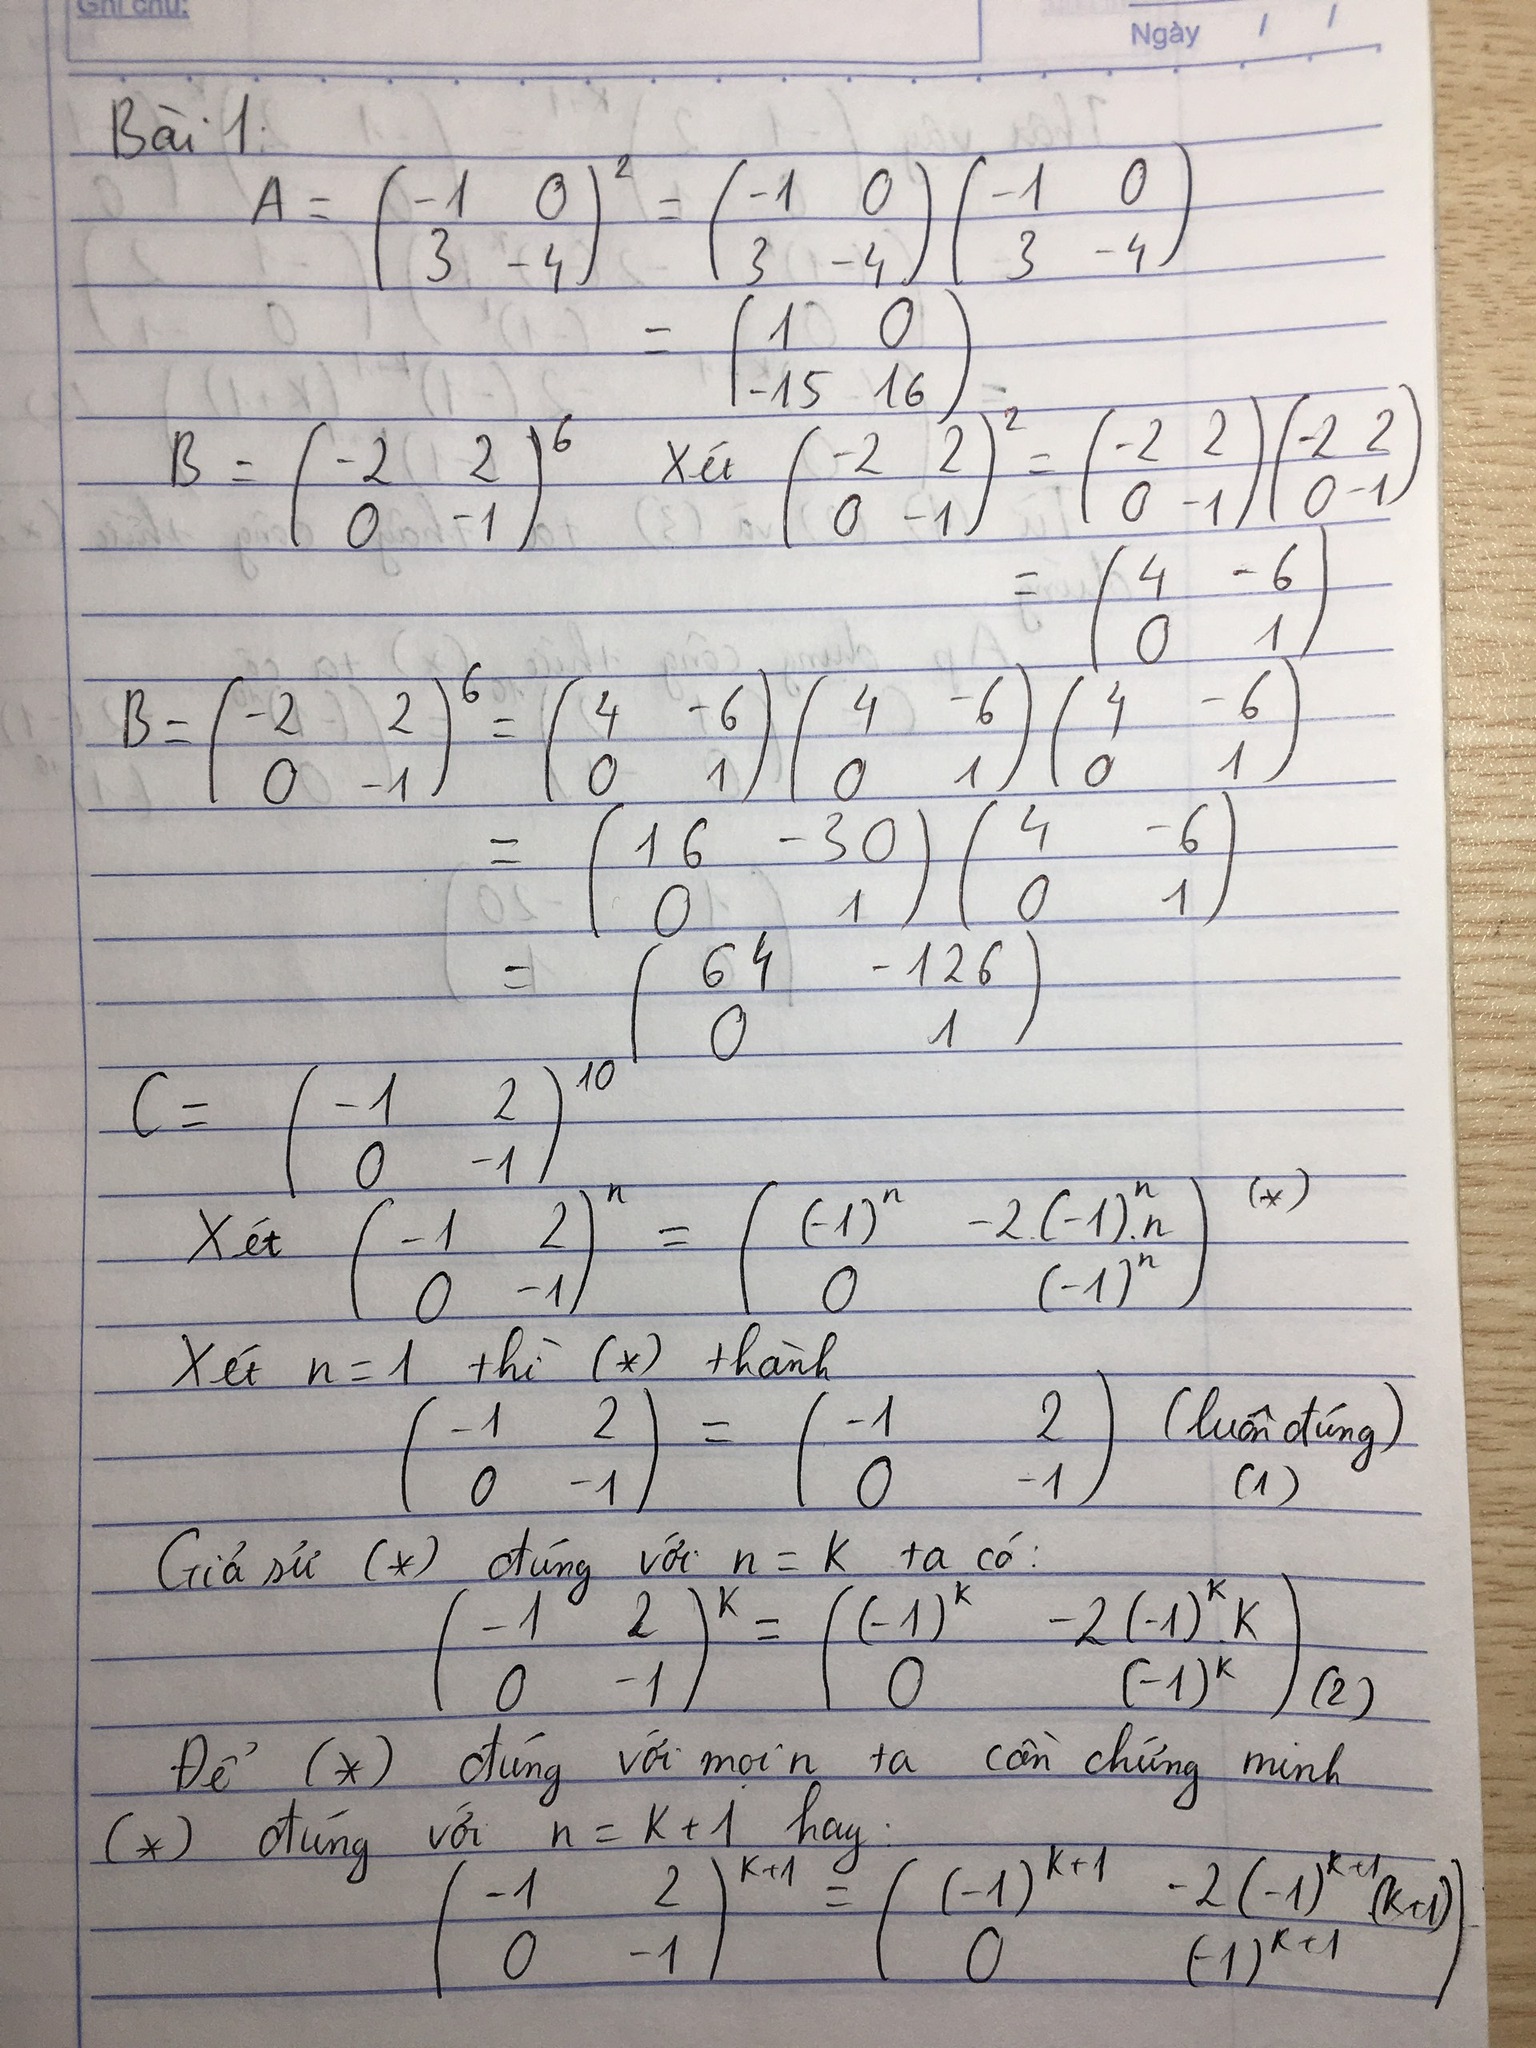 Ghi chú:
Ngày / /
Bài 1:
A = (-1 0; 3 -4)^2 = (-1 0; 3 -4) (-1 0; 3 -4)
= (1 0; -15 16)
B = (-2 2; 0 -1)^6 Xét (-2 2; 0 -1)^2 = (-2 2; 0 -1) (-2 2; 0 -1)
= (4 -6; 0 1)
B = (-2 2; 0 -1)^6 = (4 -6; 0 1) (4 -6; 0 1) (4 -6; 0 1)
= (16 -30; 0 1) (4 -6; 0 1)
= (64 -126; 0 1)
C = (-1 2; 0 -1)^10
Xét (-1 2; 0 -1)^n = ((-1)^n -2.(-1)^n.n; 0 (-1)^n) (*)
Xét n = 1 thì (*) thành
(-1 2; 0 -1) = (-1 2; 0 -1) (luôn đúng) (1)
Giả sử (*) đúng với n = K ta có:
(-1 2; 0 -1)^K = ((-1)^K -2(-1)^K.K; 0 (-1)^K) (2)
Để (*) đúng với mọi n ta cần chứng minh
(*) đúng với n = K+1 hay:
(-1 2; 0 -1)^K+1 = ((-1)^K+1 -2(-1)^K+1(K+1); 0 (-1)^K+1)